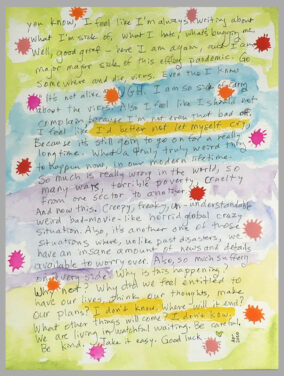 you know, I feel like I'm always writing about
what I'm sick of, what I hate, what's buggin me.
Well, good grief - here I am again, and I am
major major sick of this effing pandemic. Go
somewhere and die, virus. Even tho I know
it's not alive. UGH. I am so sick of caring
about the virus. Also I feel like I should not
complain because I'm not even that bad off.
I feel like I'd better not let myself cry,
Because it's still going to go on for a really
long time. What a truly weird thing
to happen now, in our modern lifetime.
So much is really wrong in the world, so
many wars, terrible poverty, cruelty
From one sector to another.
And now this. Creepy, freaky, un-understandable
weird bad-movie-like horrid global crazy
situation. Also, it's another one of those
situations where, unlike past disasters, we
have an insane amount of news and details
available to worry over. Also, so much suffering
on every side. Why is this happening?
Why not? Why did we feel entitled to
have our lives, think our thoughts, make
our plans? I don't know. Where will it end?
What other things will come? I don't know.
We are living in watchful waiting. Be careful.
Be kind. Take it easy. Good luck